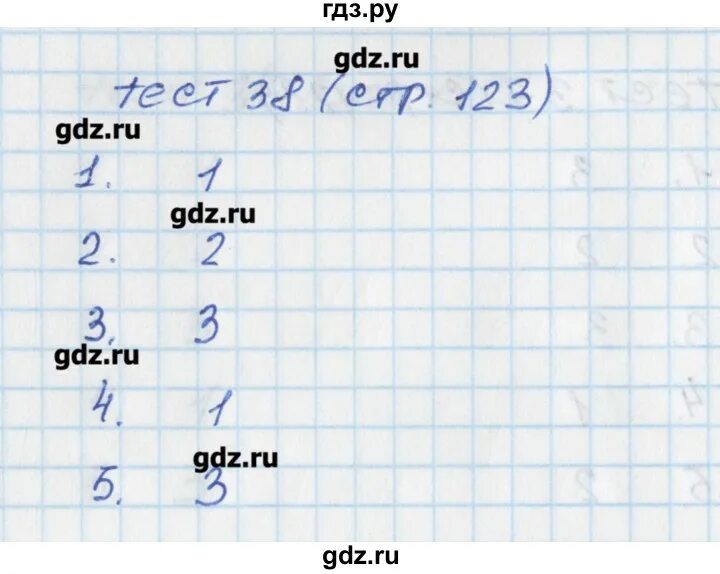 гдз.ру
gdz.ru
тест 38 (стр. 123)
gdz.ru
1. 1
gdz.ru
2. 2
3. 3
gdz.ru
4. 1
gdz.ru
5. 3
gdz.ru